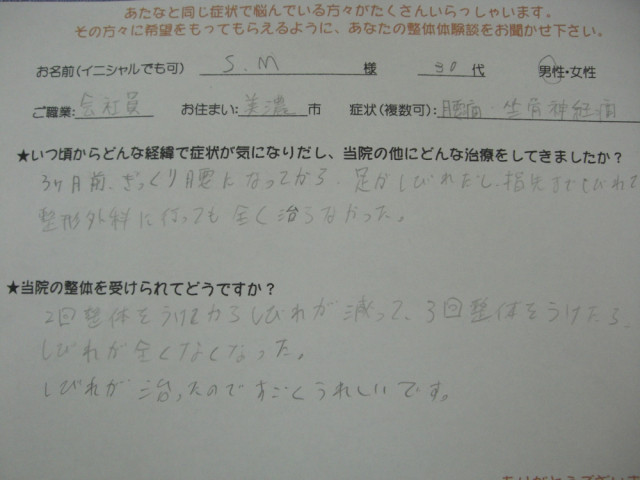 あなたと同じ症状で悩んでいる方々がたくさんいらっしゃいます。
その方々に希望をもってもらえるように、あなたの整体体験談をお聞かせ下さい。
お名前(イニシャルでも可) S.M 様 30 代 男性・女性
ご職業: 会社員 お住まい: 美濃 市 症状(複数可): 腰痛・坐骨神経痛
★いつ頃からどんな経緯で症状が気になりだし、当院の他にどんな治療をしてきましたか?
3ヶ月前、ぎっくり腰になってから、足がしびれだし、指先までしびれて
整形外科に行っても全く治らなかった。
★当院の整体を受けられてどうですか?
2回整体をうけてからしびれが減って、3回整体をうけたら、
しびれが全くなくなった。
しびれが治ったのですごくうれしいです。